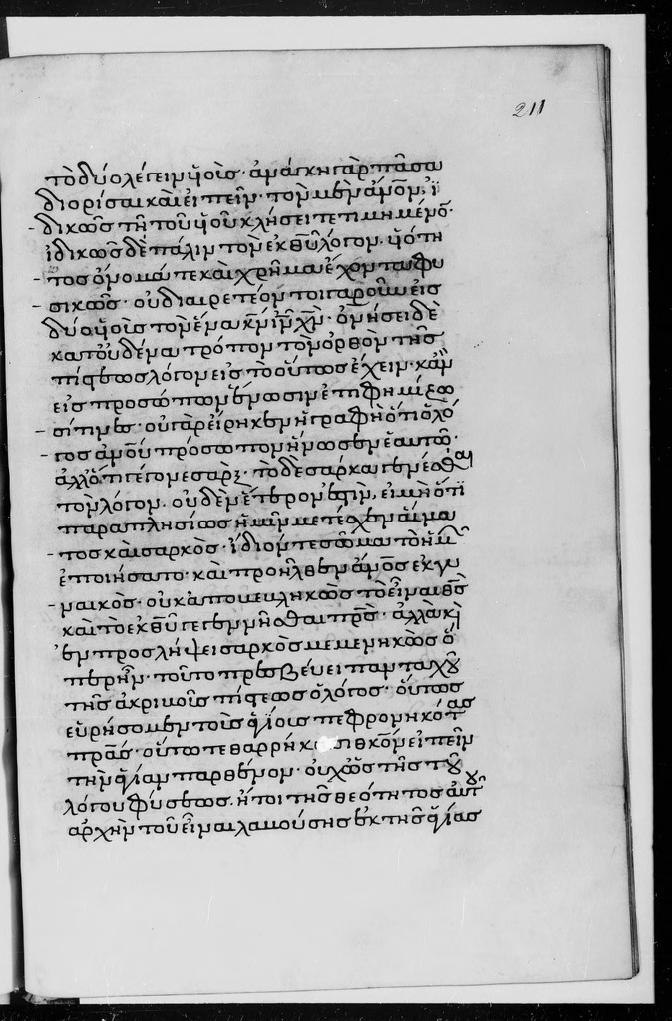 211
τὸ δύο λέγειν υἱοὺς· ἀνάγκη γὰρ πᾶσα
διορίσαι καὶ εἰπεῖν· τὸν μὲν ἄνον, ἰ
δικῶς τῆ τοῦ υἱοῦ κλήσει τετιμημένο·
ἰδικῶς δὲ πάλιν τὸν ἐκ θυ λόγον, υἱότη
τος ὄνομα τε καὶ χρῆμα ἔχοντα φυ
σικῶς· οὐ διαιρετέον τοιγαροῦν εἰς
δύο υἱοὺς τὸν ἕνα κν ιν χν· ὀνήσει δὲ
κατ οὐδένα τρόπον τὸν ὀρθὸν τῆς
πίστεως λόγον εἰς τὸ οὕτως ἔχειν· κἂν
εἰς προσώπων ἕνωσιν ἐπιφημίζω
σί τινες· οὐ γὰρ εἴρηκεν ἡ γραφὴ ὅτι ὁ λό
γος ἀνου πρόσωπον ἥνωσεν ἑαυτῶ·
ἀλλ ὅτι γέγονε σὰρξ· τὸ δὲ σάρκα γενέσθαι
τὸν λόγον, οὐδὲν ἕτερον ἐστὶν, εἰ μὴ ὅτι
παραπλησίως ἡμῖν μετέσχεν αἵμα
τος καὶ σαρκὸς· ἴδιον τε σῶμα τὸ ἡμ
ἐποιήσατο· καὶ προῆλθεν ἄνος ἐκ γυ
ναικὸς· οὐκ ἀποβεβληκὼς τὸ εἶναι θς
καὶ τὸ ἐκ θυ γεγεννῆσθαι πρς· ἀλλὰ κὶ
ἐν προσλήψει σαρκὸς μεμενηκὼς ὅ
περ ἦν· τοῦτο πρεσβεύει πανταχοῦ
τῆς ἀκριβοῦς πίστεως ὁ λόγος· οὕτως
εὑρήσομεν τοὺς ἁγίους πεφρονηκότας
πρας· οὕτω τεθαρρήκασι θκον εἰπεῖν
τὴν ἁγίαν παρθένον· οὐχ ὡς τῆς τοῦ
λόγου φύσεως· ἤτοι τῆς θεότητος αὐτοῦ
ἀρχὴν τοῦ εἶναι λαβούσης ἐκ τῆς ἁγίας